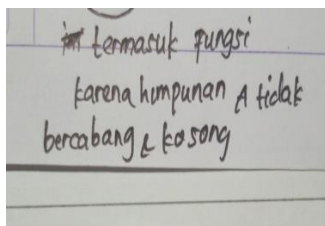 termasuk fungsi
karena humpunan A tidak
bercabang & kosong